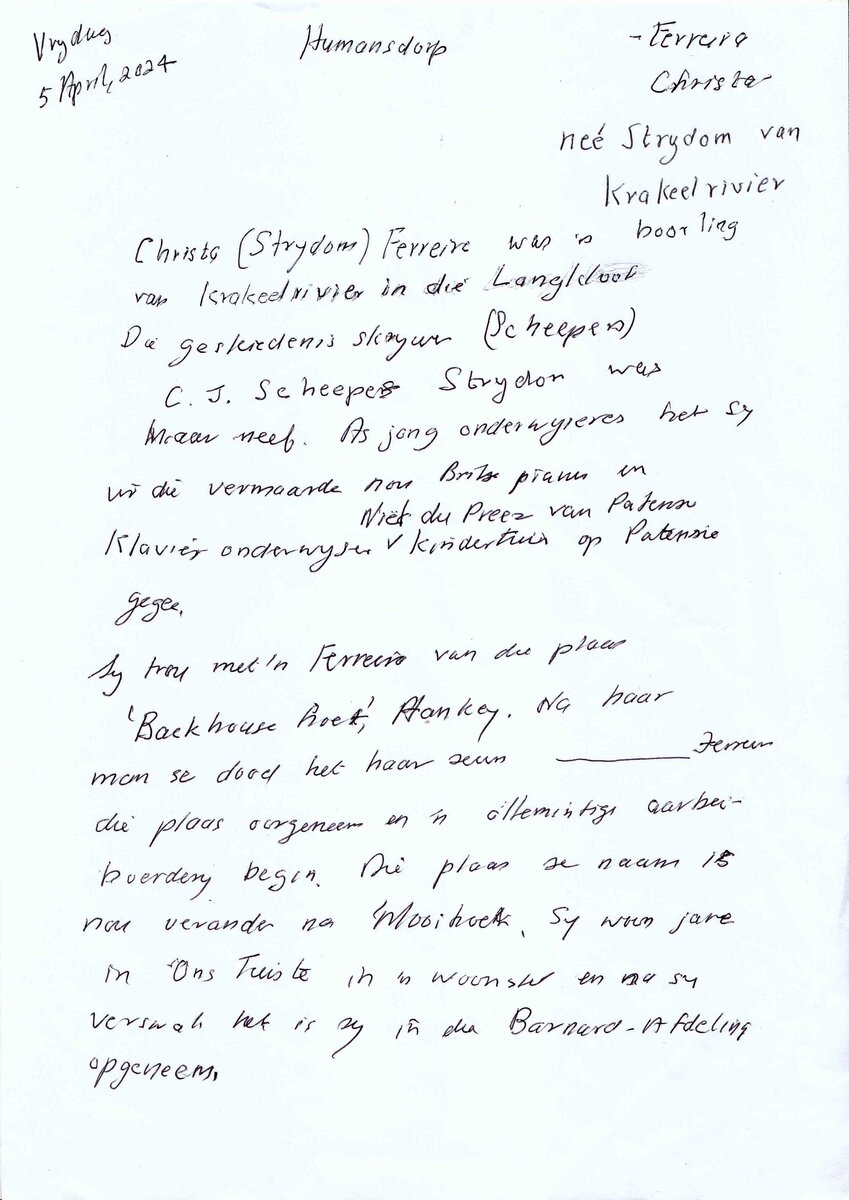 Vrydag
5 April, 2024
Humansdorp
- Ferreira
Christa
neé Strydom van
Krakeelrivier
Christa (Strydom) Ferreira was 'n boorling
van Krakeelrivier in die Langkloof
Die geskiedenis skrywer (Scheepers)
C. J. Scheepers Strydom was
haar neef. As jong onderwyseres het sy
vir die vermaarde nou Brits pianis en
Niël du Preez van Patensie
Klavier onderwyser v kindertuin op Patensie
gegee.
Sy trou met 'n Ferreira van die plaas
'Backhouse hoek', Hankey. Na haar
man se dood het haar seun ________ Ferreira
die plaas oorgeneem en 'n allemintige aarbei-
boerdery begin. Die plaas se naam is
nou verander na 'Mooihoek. Sy woon jare
in 'Ons Tuiste in 'n woonstel en na sy
verswak het is sy in die Barnard-Afdeling
opgeneem.